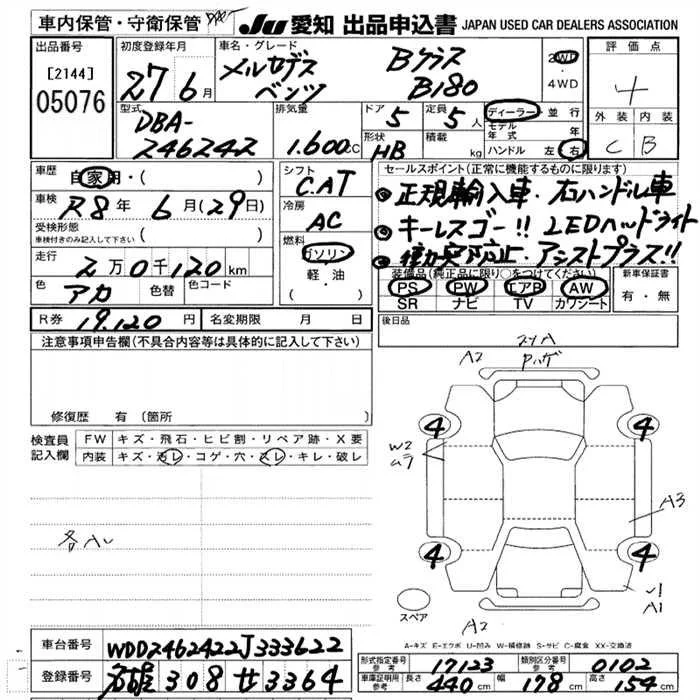 車内保管・守衛保管
JU 愛知 出品申込書 JAPAN USED CAR DEALERS ASSOCIATION
出品番号
[2144]
05076
初度登録年月
27 6月
車名・グレード
メルセデス
ベンツ
Bクラス
B180
2WD
・
4WD
評価点
4
外装 内装
C B
型式
DBA-
246242
排気量
1.600CC
ドア 5
形状
HB
定員 5 人
積載
kg
ディーラー・並行
モデル
年式 年
ハンドル 左 右
車歴
自家用・( )
車検
R8年 6月(29日)
受検形態
車検付きのみ記入して下さい ( )
走行
2万0千120km
色
アカ
色替
色コード
シフト
CAT
冷房
AC
燃料
ガソリン
・
軽・油
( )
セールスポイント(正常に機能するものに限ります)
◎正規輸入車・右ハンドル車
◎キーレスゴー!! LEDヘッドライト
アシストプラス!!
装備品(純正品に限り○をつけてください)
PS PW エアB AW
SR ナビ TV カワシート
新車保証書
有・無
R券 19.120円
名変期限 月 日
後日品
注意事項申告欄(不具合内容等は具体的に記入して下さい)
修復歴 有(箇所
検査員
記入欄
FW キズ・飛石・ヒビ割・リペア跡・X要
内装 キズ・汚レ・コゲ・穴・スレ・キレ・破レ
A2
4
4
W2
ムラ
A3
4
4
A1
A2
スペア
A-キズ E-エクボ U-凹み W-補修跡 S-サビ C-腐食 XX-交換済
車台番号
WDD2462422J333622
登録番号
308 せ 3364
形式指定番号
参考
17123
類別区分番号
参考
0102
車庫証明用
参考
長さ 440cm 幅 178cm 高さ 154cm